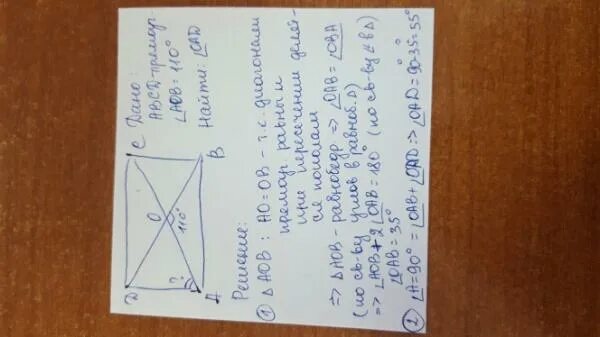 Дано:
ABCD-прямоуг.
∠AOB = 110°
Найти: ∠OAD
D
C
O
110°
?
A
B
Решение:
① △AOB: AO=OB - т.к. диагонали
прямоуг. равны и
при пересечении делят-
ся пополам
⇒ △AOB - равнобедр ⇒ ∠OAB = ∠OBA
(по св-ву углов в равноб. △)
⇒ ∠AOB + 2∠OAB = 180° (по св-ву ∠ в △)
∠OAB = 35°
② ∠A=90° = ∠OAB + ∠OAD ⇒ ∠OAD = 90-35=55°